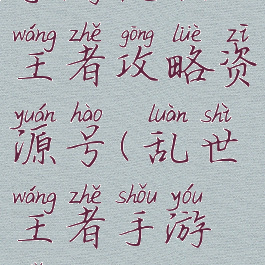 wáng zhě gōng lüè zī
王者攻略资
yuán hào luàn shì
源号(乱世
wáng zhě shǒu yóu
王者手游